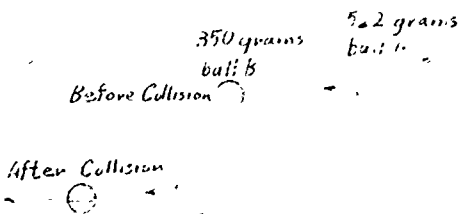 350 grams
5.2 grams
ball B
ball
Before Collision
After Collision